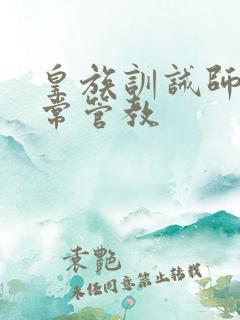 皇族訓誡師
常管教
袁艷
未经同意禁止转载